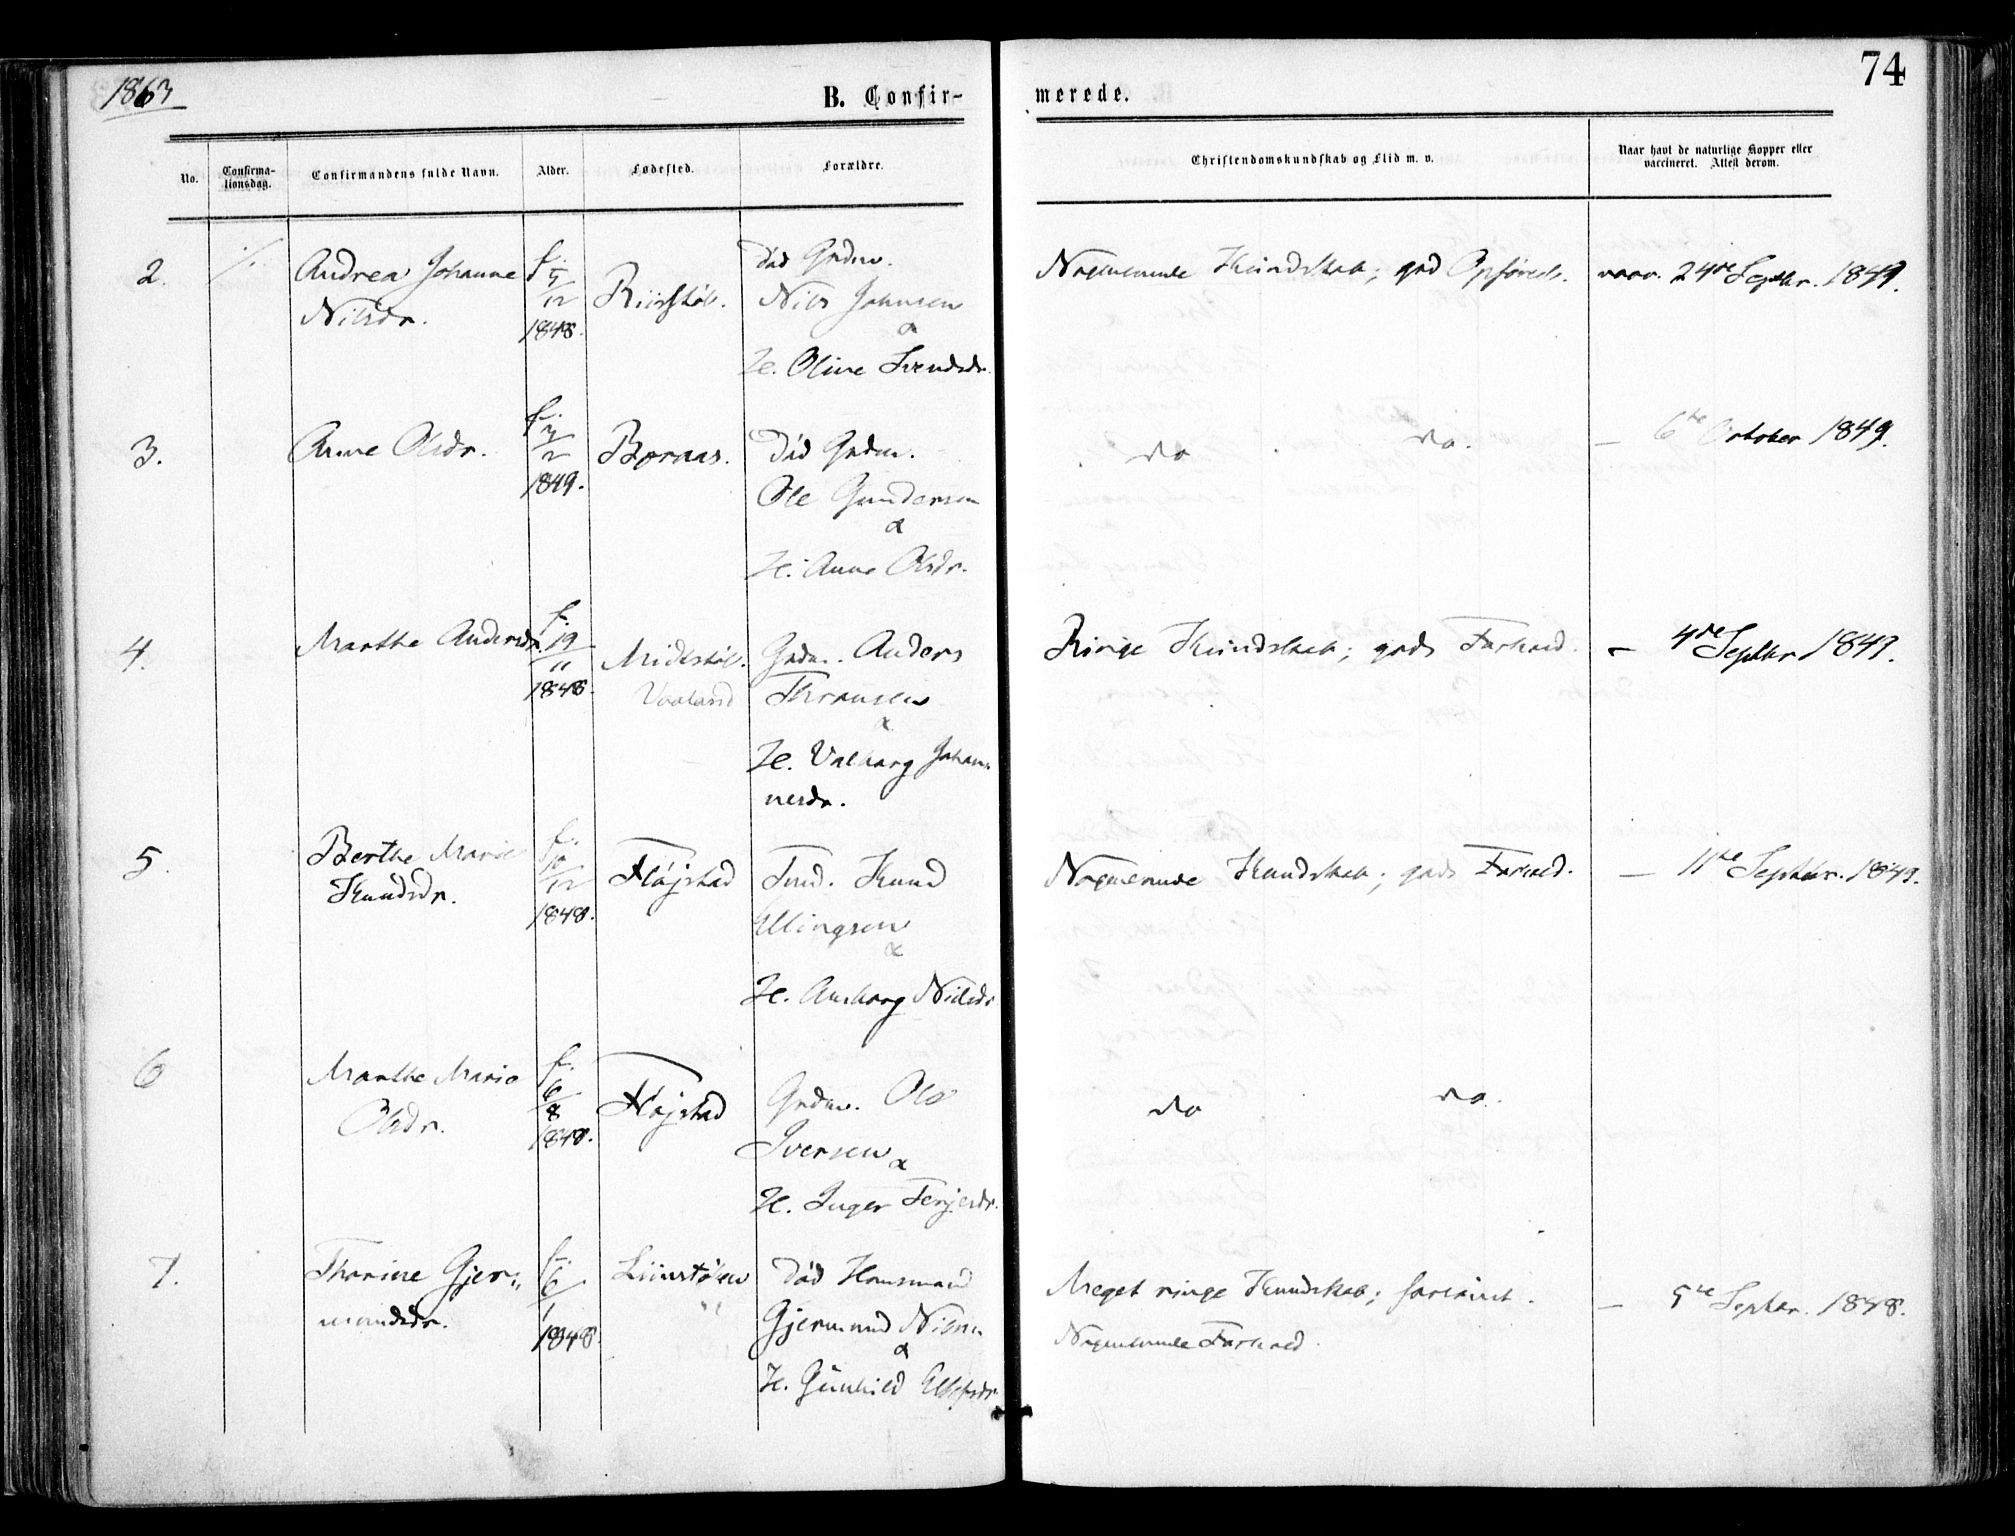 1863
74
B. Confir-
merede.
No.
Confirma-
tionsdag.
Confirmandens fulde Navn.
Alder.
Fødested.
Forældre.
Christendomskundskab og Flid m. v.
Naar havt de naturlige Kopper eller
vaccineret. Attest derom.
2.
Andrea Johanne
Nilsdr.
f. 5/12
1848.
Død Grdm.
Nils Johnsen
&
H. Olive Svendsdr.
Nogenlunde Kundskab; god Opførsel.
vacc. 24de Septbr. 1849.
3.
Anne Olsdr.
f.
1849.
Død Grdm.
Ole Gundersen
&
H. Anne Olsdr.
do do.
— 6te October 1849.
4.
Marthe Andersdr.
f. 19/11
1848.
Midtstøl.
Vaaland
Grdm. Anders
&
H. Valborg Johan-
nesdr.
Ringe Kundskab; gods Forhold.
— 4de Septbr 1849.
5.
Berthe Marie
Knudsdr.
f. 10/12
1848.
Fløjstad
Knud
Ellingsen
&
H. Nilsdr
Nogenlunde Kundskab; gods Forhold.
— 11te Septbr. 1849.
6
Marthe Marie
Olsdr.
f. 6/8
1848.
Fløjstad
Grdm. Ole
Iversen &
H. Inger Terjesdr.
do do.
7.
Thorine Gjer-
mundsdr.
f. 6/1
1848
Død Husmand
Gjermund Nilsen
&
H. Gunhild
Meget ringe Kundskab;
Nogenlunde Forhold.
— 5te Septbr. 1848.